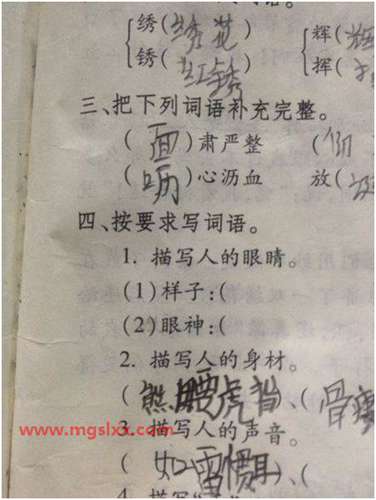 绣(绣花) 辉(辉
锈(红锈) 挥(
三、把下列词语补充完整。
(面)肃严整 (
(呖)心沥血 放(
四、按要求写词语。
1. 描写人的眼睛。
(1)样子:(
(2)眼神:(
2. 描写人的身材。
(熊腰虎背、(骨瘦
www.mgslxx.com
3. 描写人的声音。
(如雷惯耳)、(
4. 描写